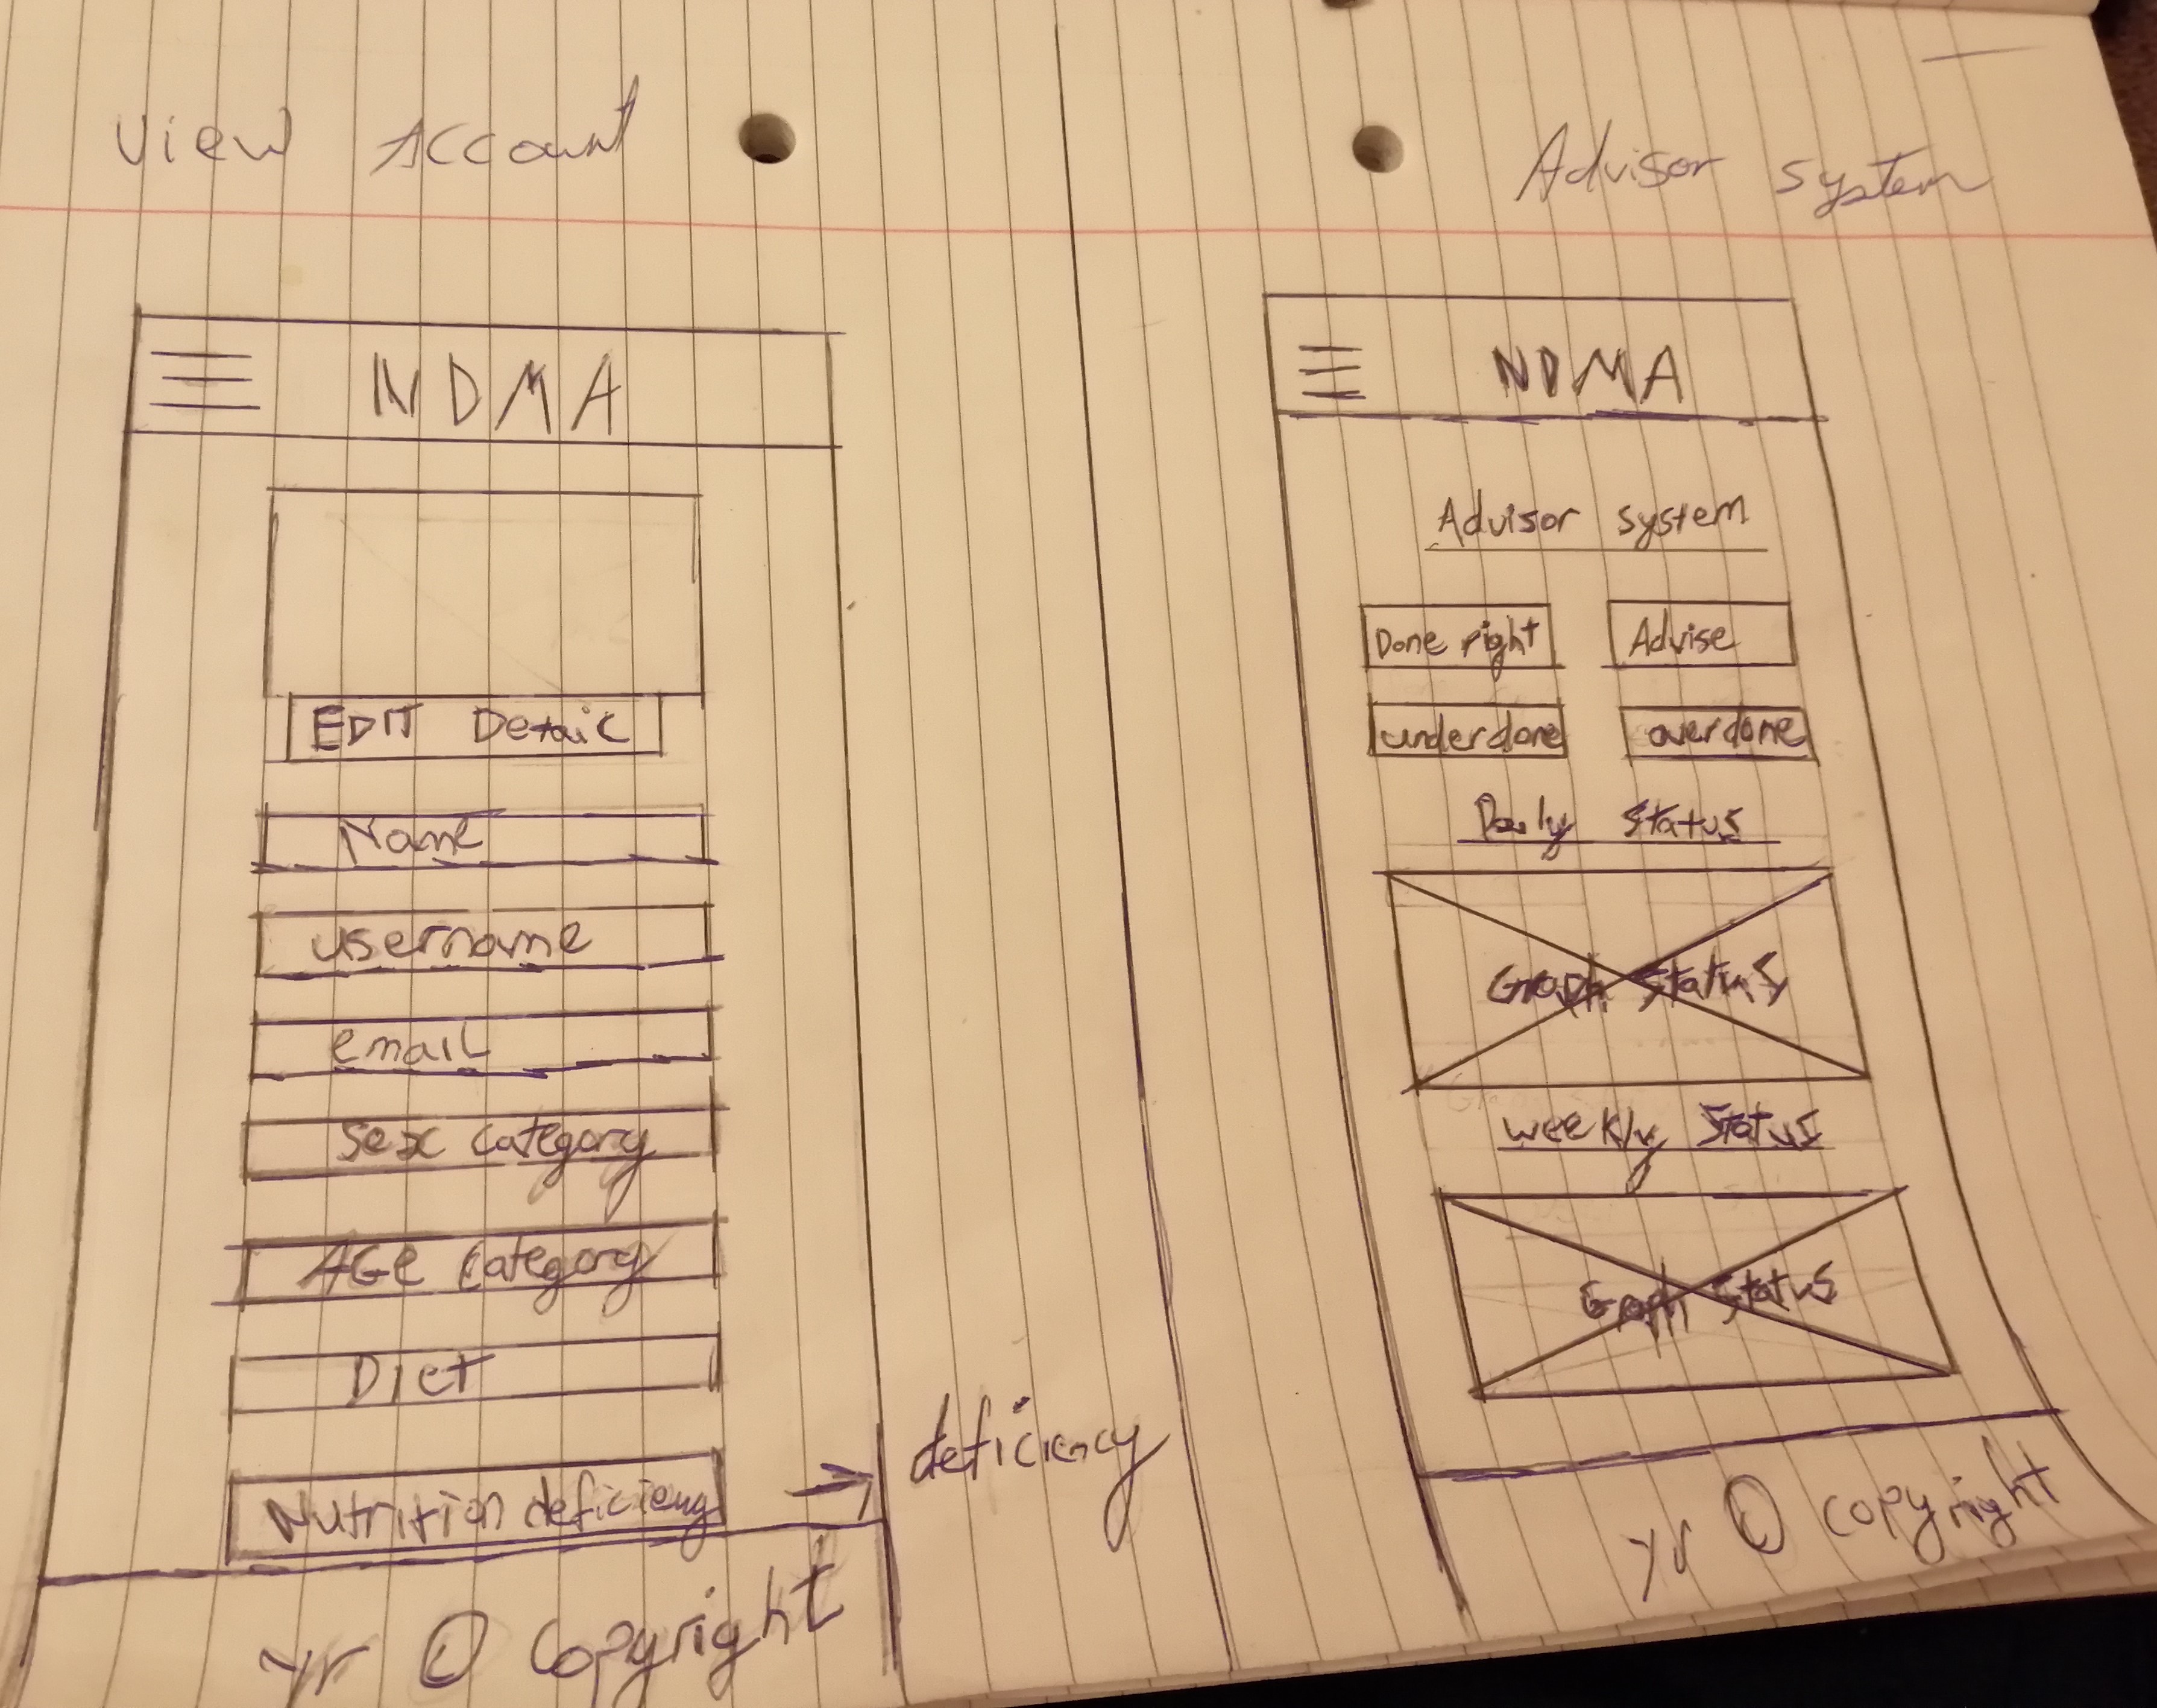 View Account
NDMA
EDIT Detail
Name
username
email
Sex category
AGe category
Diet
Nutrition deficiency
deficiency
yr © copyright
Advisor system
NDMA
Advisor system
Done right
Advise
underdone
overdone
Daily Status
Graph Status
weekly Status
Graph Status
yr © copyright